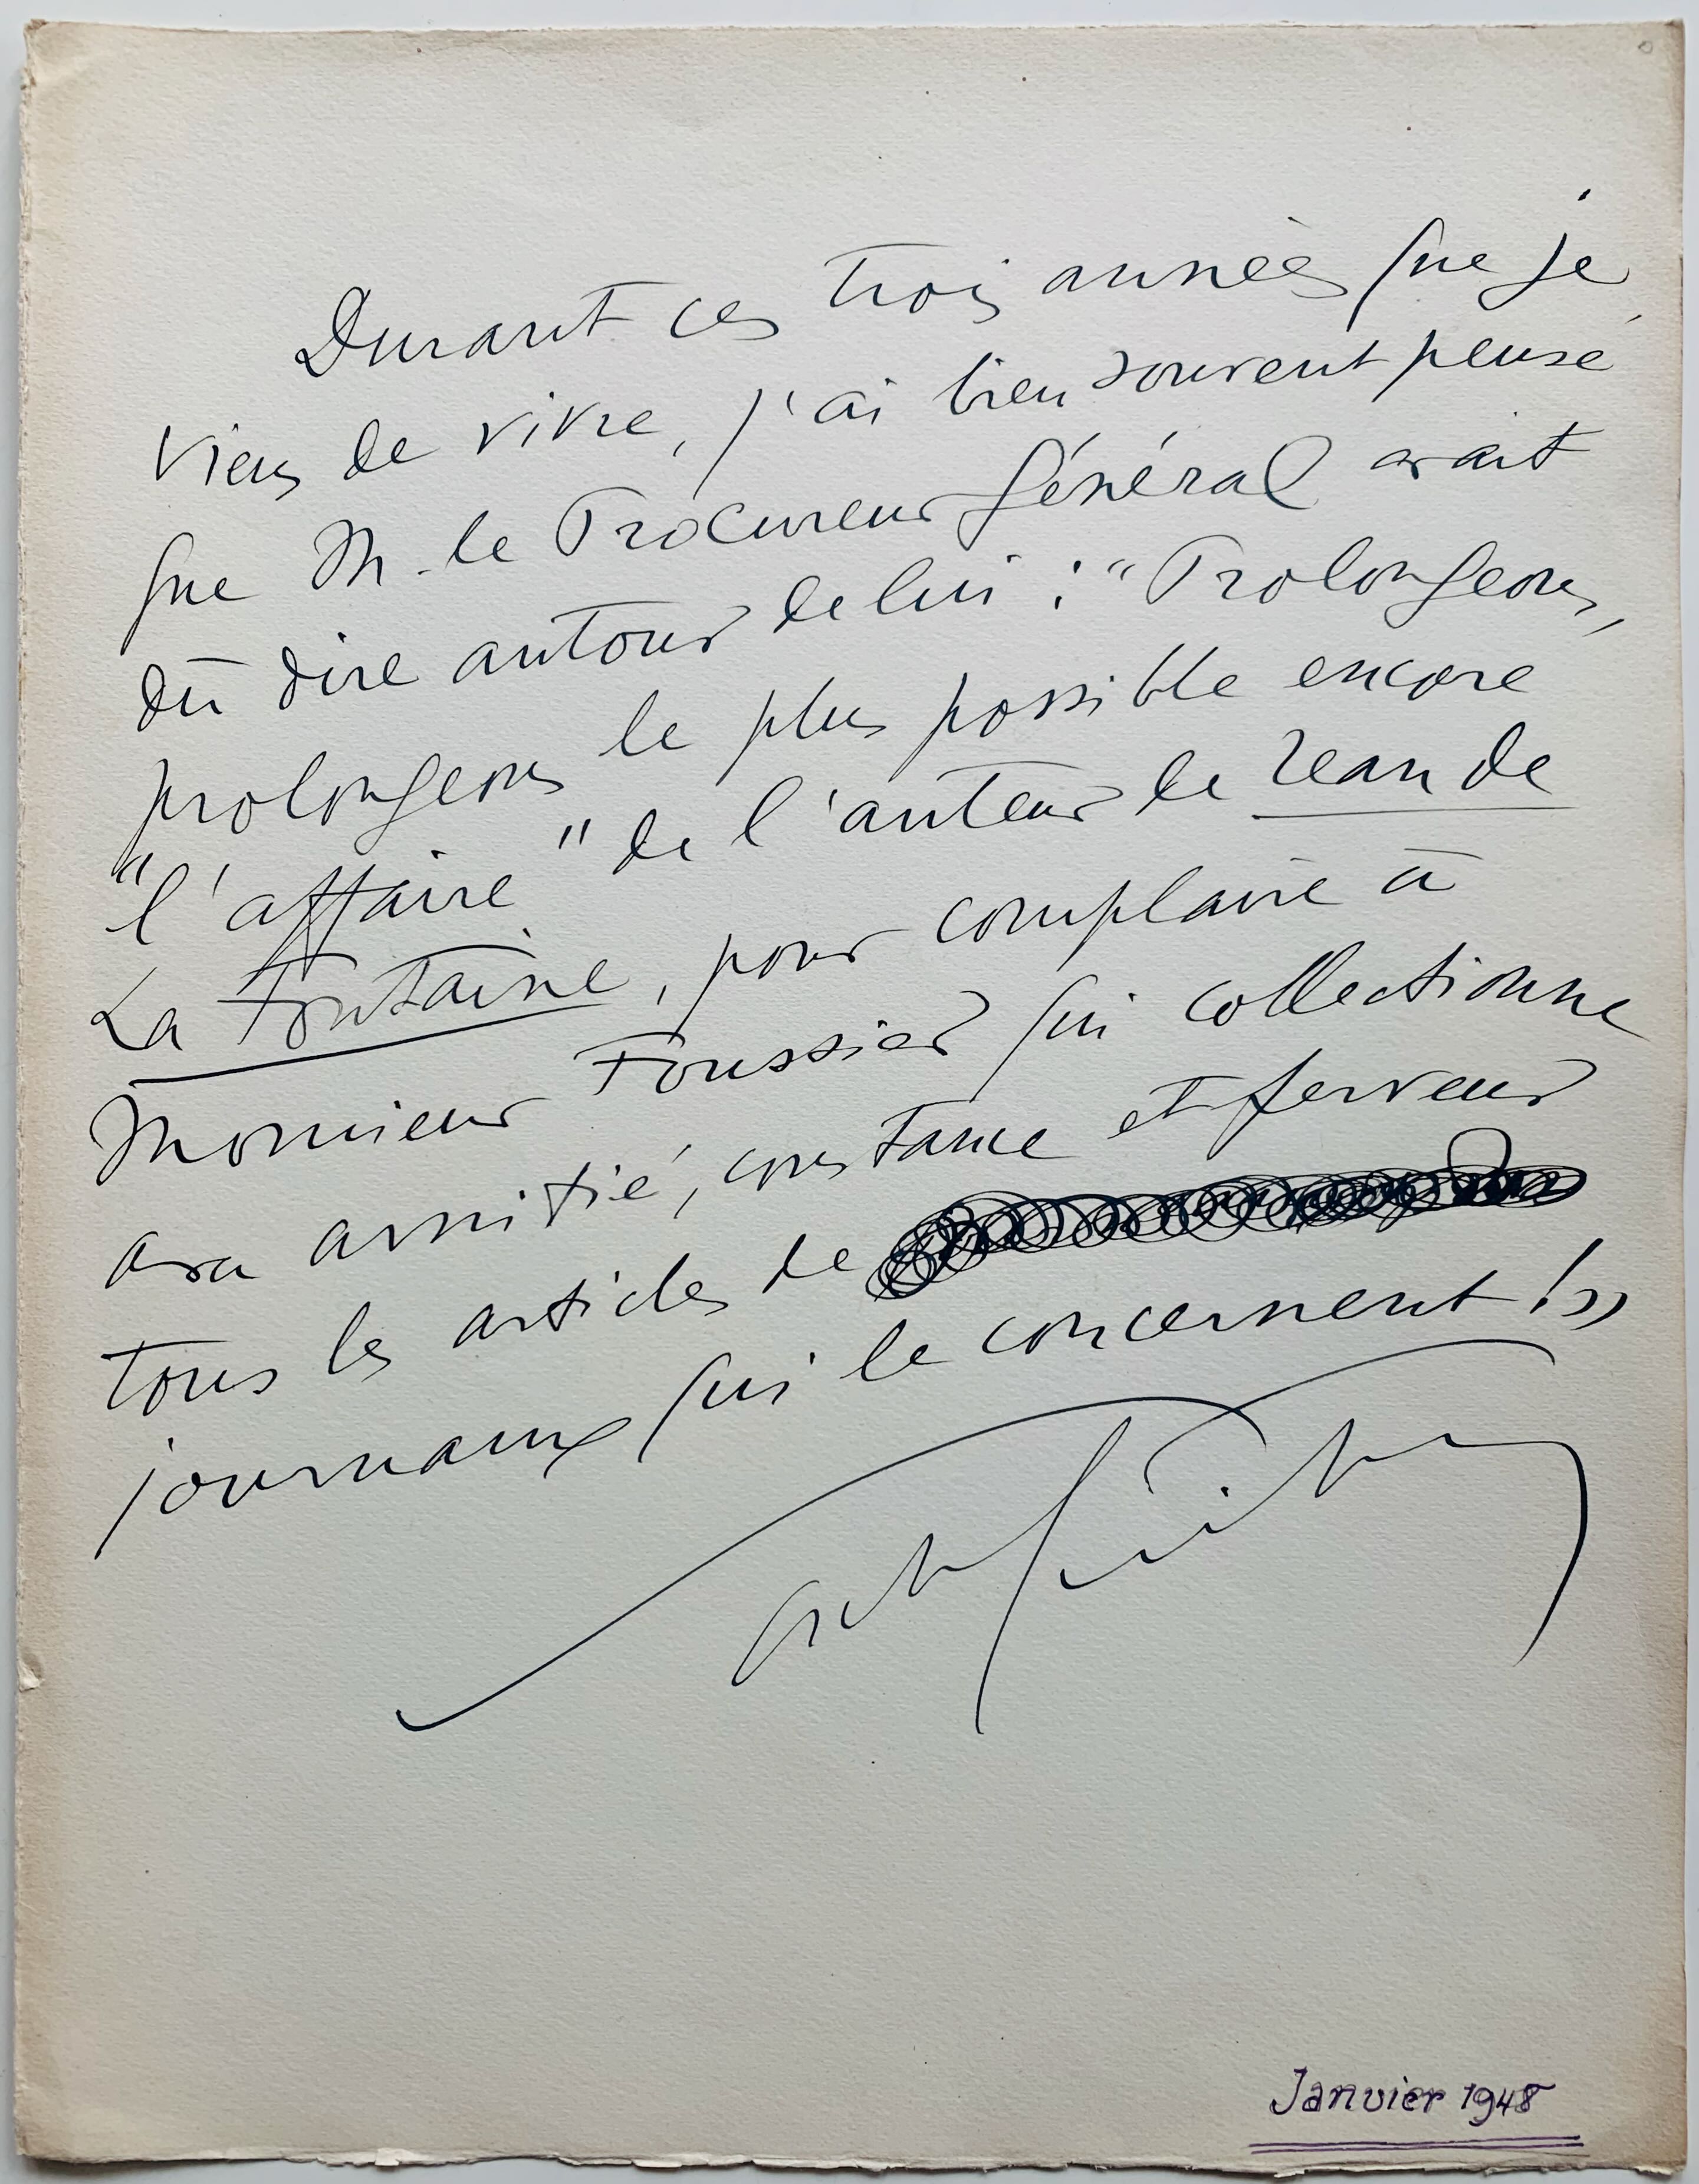 Durant ces trois années que je
viens de vivre, j'ai bien souvent pensé
que M. le Procureur Général avait
dû dire autour de lui : "Prolongeons,
prolongeons le plus possible encore
"l'affaire" de l'auteur de Jean de
La Fontaine, pour complaire à
Monsieur Foussier qui collectionne
avec amitié, constance et ferveur
tous les articles de
journaux qui le concernent !"
Sacha Guitry
Janvier 1948